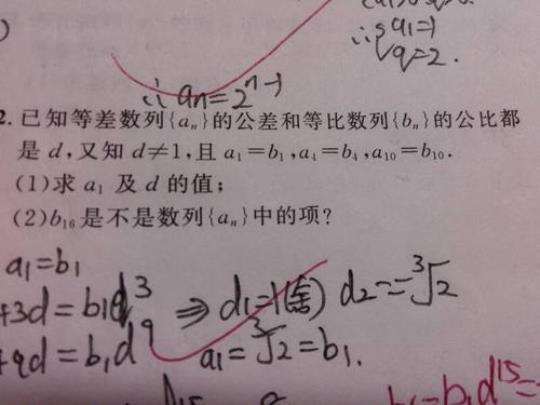 )
∴{a₁=1
q=2.
∴ aₙ=2ⁿ⁻¹
2. 已知等差数列{aₙ}的公差和等比数列{bₙ}的公比都
是 d,又知 d≠1,且 a₁=b₁,a₄=b₄,a₁₀=b₁₀.
(1)求 a₁ 及 d 的值;
(2)b₁₆是不是数列{aₙ}中的项?
a₁=b₁
+3d=b₁d³ ⇒ d₁=1(舍) d₂=-³√2
+9d=b₁d⁹ a₁=³√2=b₁.
b₁d¹⁵=